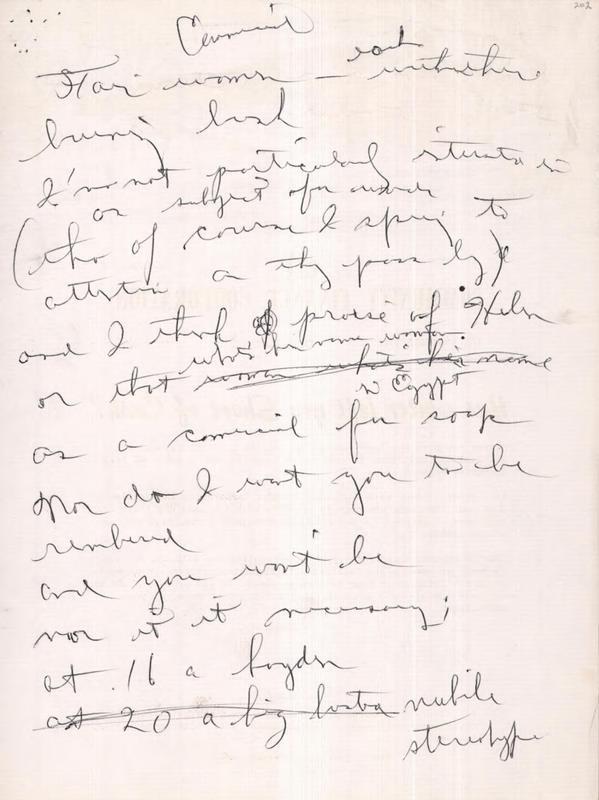 202
Commercial
Fair women — each
bring
I'm not particularly interested in
or subject of an
(tho of course I spring to
attention as they pass by)
and I think praise of Helen
or that what's her name woman
woman what's his name
in Egypt
as a comercial for soap
Nor do I want you to be
remembered
and you won't be
nor is it necessary;
at 16 a hoyden
at 20 a big nubile
stereotype